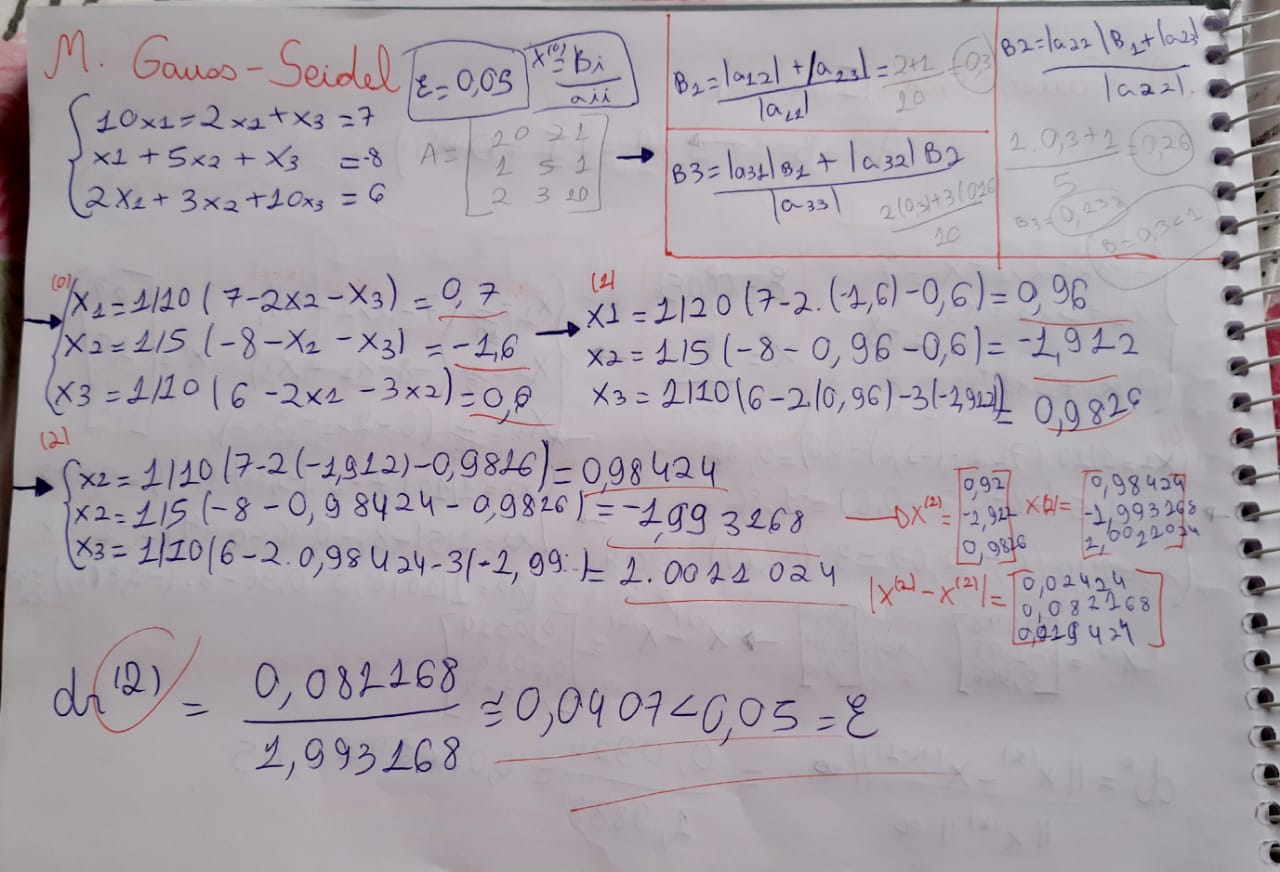 M. Gauss-Seidel
ε=0,05
x⁽⁰⁾=Bi/aii
10x1=2x2+x3=7
x1+5x2+x3=-8
2x1+3x2+10x3=6
A=
10 2 1
1 5 1
2 3 10
B1=|a12|+|a13|/|a11|=2+1/10=0,3
B3=|a31|B1+|a32|B2/|a33|
2(0,3)+3(0,26/10
B2=|a22|B1+|a23|/|a22|.
1.0,3+1/5=0,26
B3=0,238
B=0,3<1
(0)
x1=1/10(7-2x2-x3)=0,7
x2=1/5(-8-x2-x3)=-1,6
x3=1/10(6-2x1-3x2)=0,6
(1)
x1=1/10(7-2.(-1,6)-0,6)=0,96
x2=1/5(-8-0,96-0,6)=-1,912
x3=1/10(6-2(0,96)-3(-1,912))=0,9826
(2)
x2=1/10(7-2(-1,912)-0,9826)=0,98424
x2=1/5(-8-0,98424-0,9826)=-1,993268
x3=1/10(6-2.0,98424-3(-1,99..)=1.0011024
x⁽²⁾=
0,92
-1,912
0,9826
x⁽²⁾=
0,98424
-1,993268
|x⁽²⁾-x⁽²⁾|=
0,02424
0,081168
0,019424
dr⁽²⁾=0,081168/1,993168≅0,0407<0,05=ε